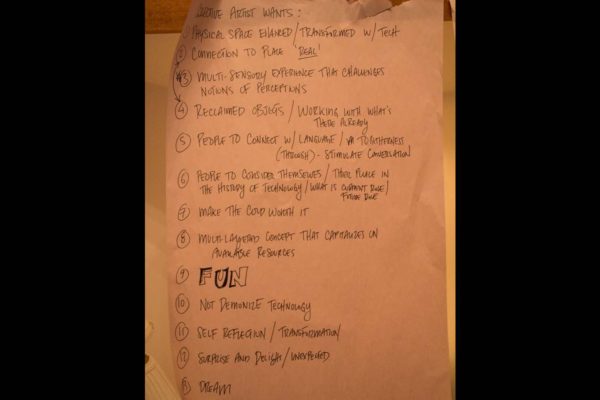 ARTIST WANTS:
① PHYSICAL SPACE ENABLED/TRANSFORMED W/ TECH
② CONNECTION TO PLACE 'REAL'
#3 MULTI-SENSORY EXPERIENCE THAT CHALLENGES
NOTIONS OF PERCEPTIONS
④ RECLAIMED OBJECTS / WORKING WITH WHAT'S
THERE ALREADY
⑤ PEOPLE TO CONNECT W/ LANGUAGE / TOGETHERNESS
(THROUGH) - STIMULATE CONVERSATION
⑥ PEOPLE TO CONSIDER THEMSELVES / THEIR PLACE IN
THE HISTORY OF TECHNOLOGY / WHAT IS CURRENT ROLE /
FUTURE ROLE
⑦ MAKE THE COLD WORTH IT
⑧ MULTI-LAYERED CONCEPT THAT CAPITALIZES ON
AVAILABLE RESOURCES
⑨ FUN
⑩ NOT DEMONIZE TECHNOLOGY
⑪ SELF REFLECTION / TRANSFORMATION
⑫ SURPRISE AND DELIGHT / UNEXPECTED
⑬ DREAM